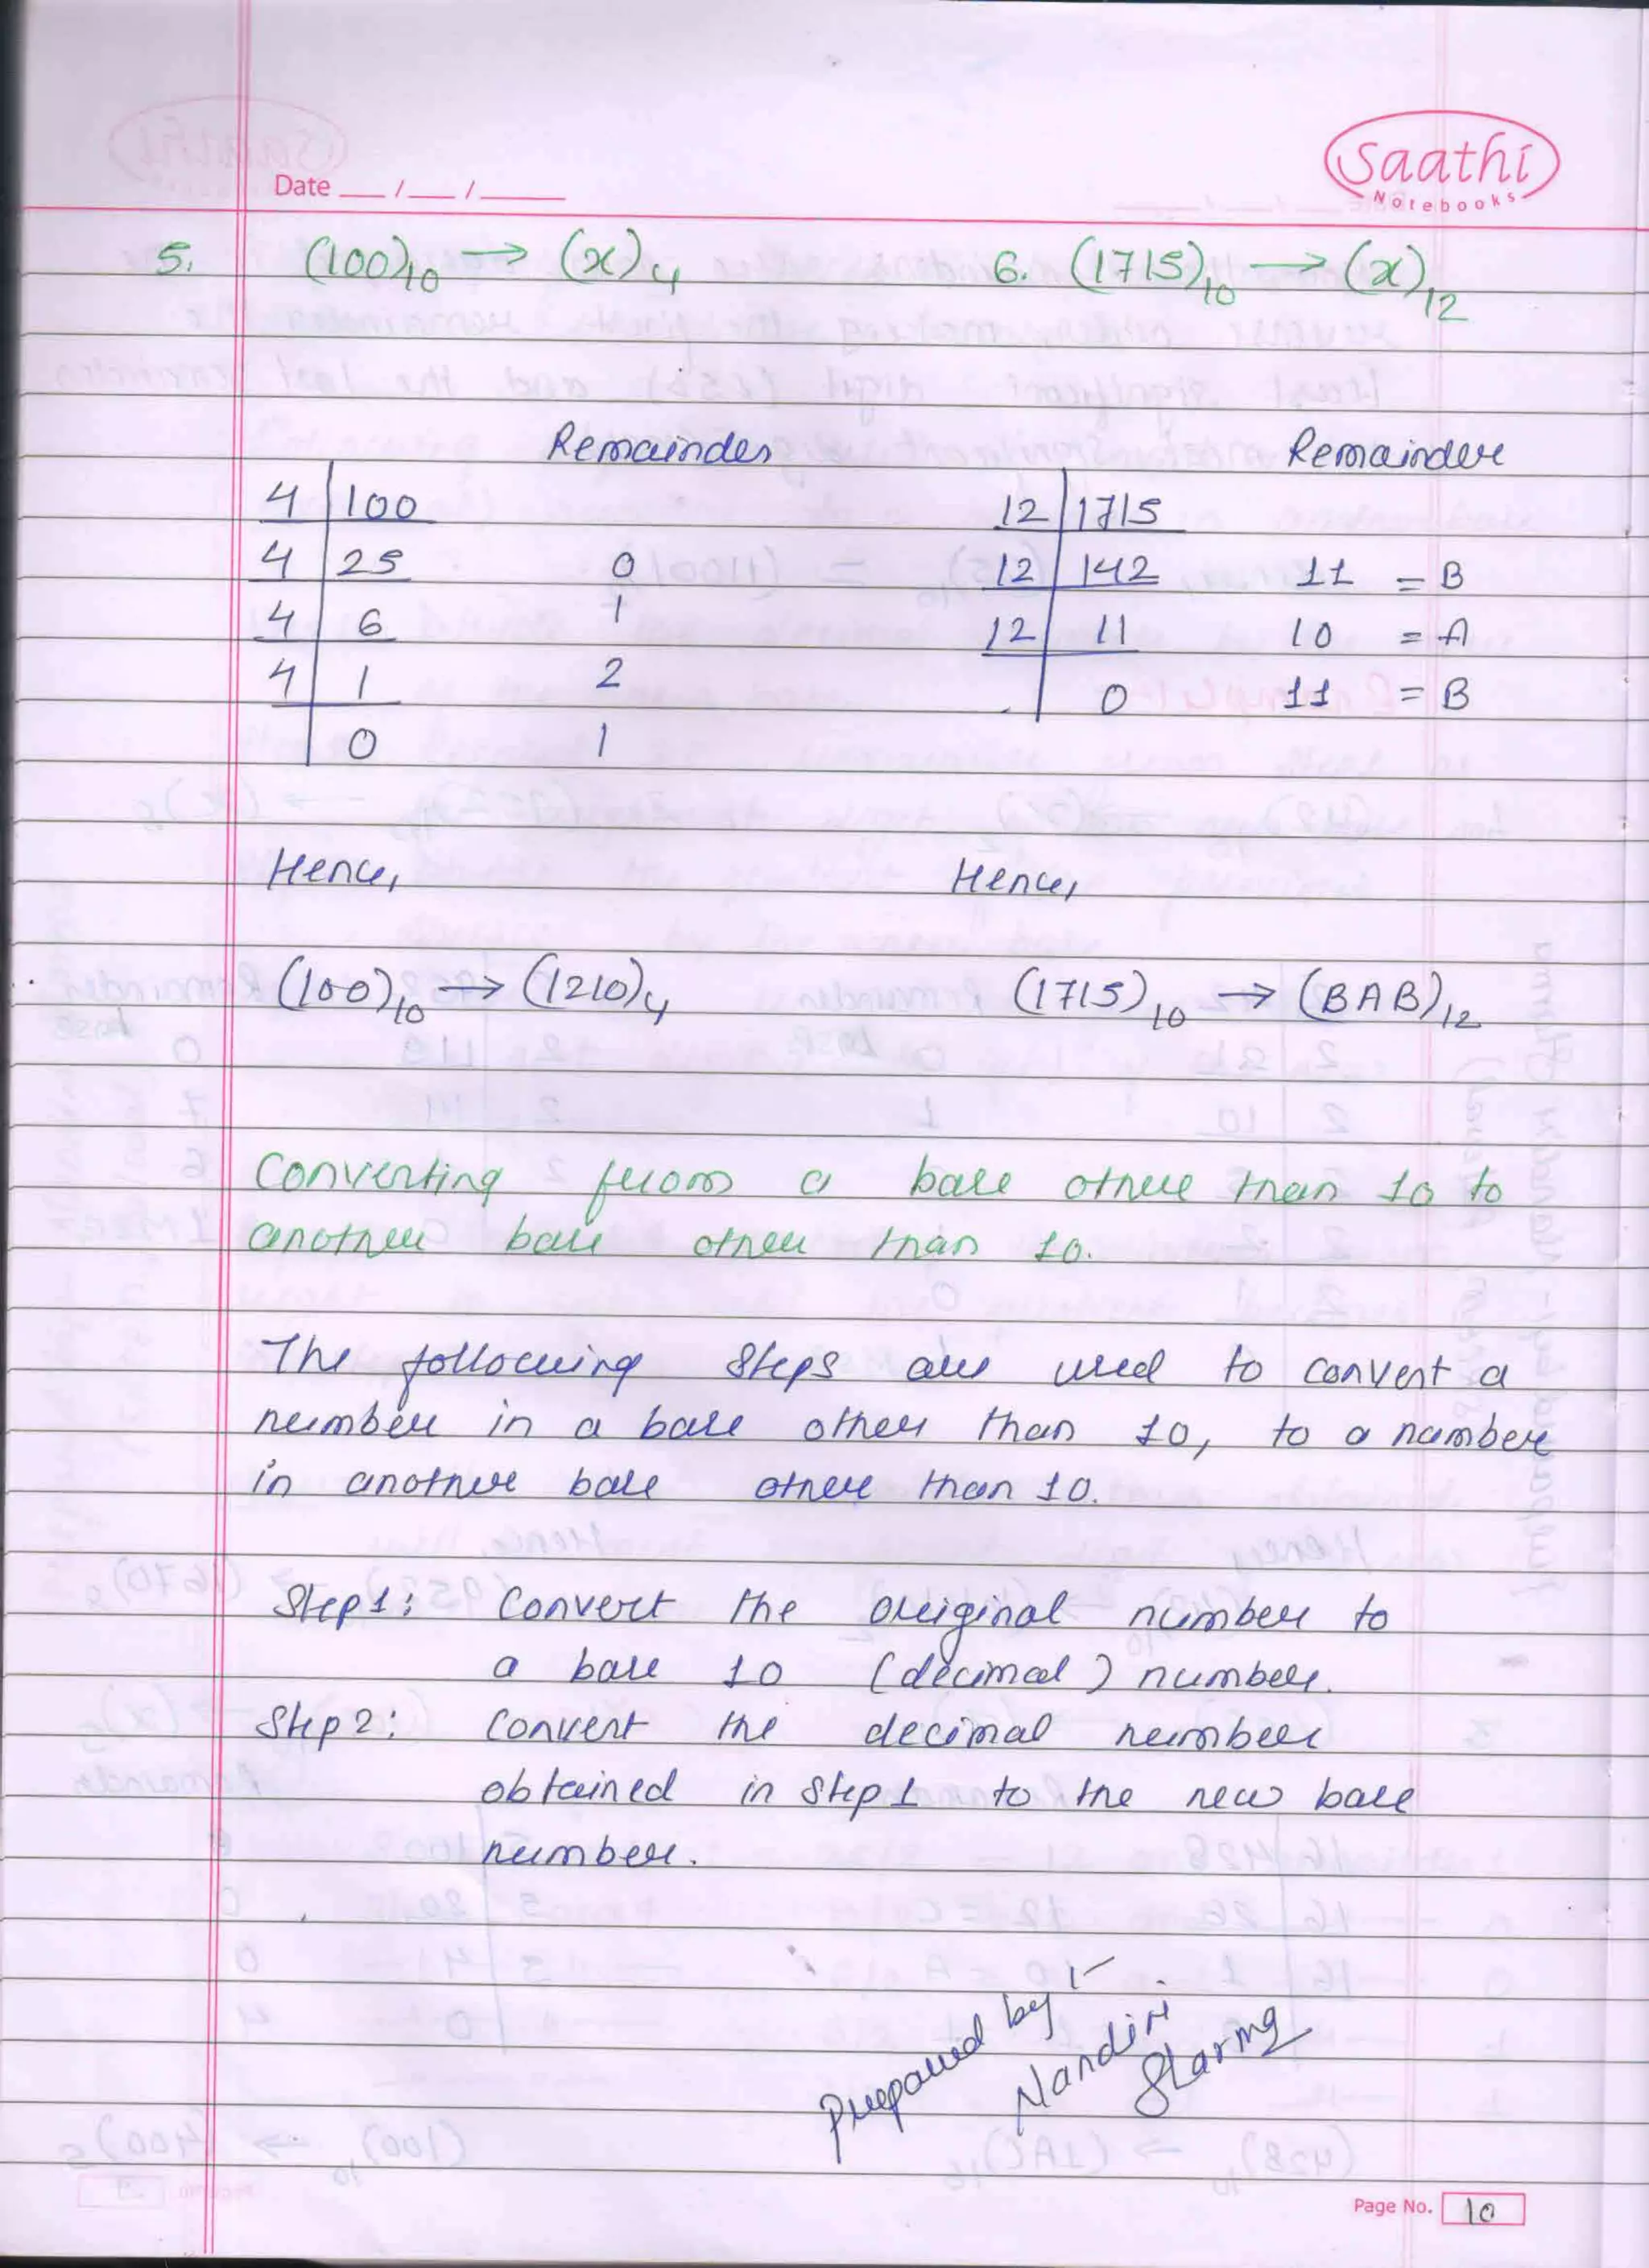 Saathi
Notebooks
Date __/__/____
5. (100)10 → (x)4 6. (1715)10 → (x)12
Remainder Remainder
4 100 12 1715
4 25 0 12 142 11 = B
4 6 1 12 11 10 = A
4 1 2 0 11 = B
0 1
Hence, Hence,
(100)10 → (1210)4 (1715)10 → (BAB)12
Converting from a base other than 10 to
another base other than 10.
The following steps are used to convert a
number in a base other than 10, to a number
in another base other than 10.
Step1: Convert the original number to
a base 10 (decimal) number.
Step2: Convert the decimal number
obtained in step1 to the new base
number.
Prepared by :-
Nandini
Sharma
Page No. 10